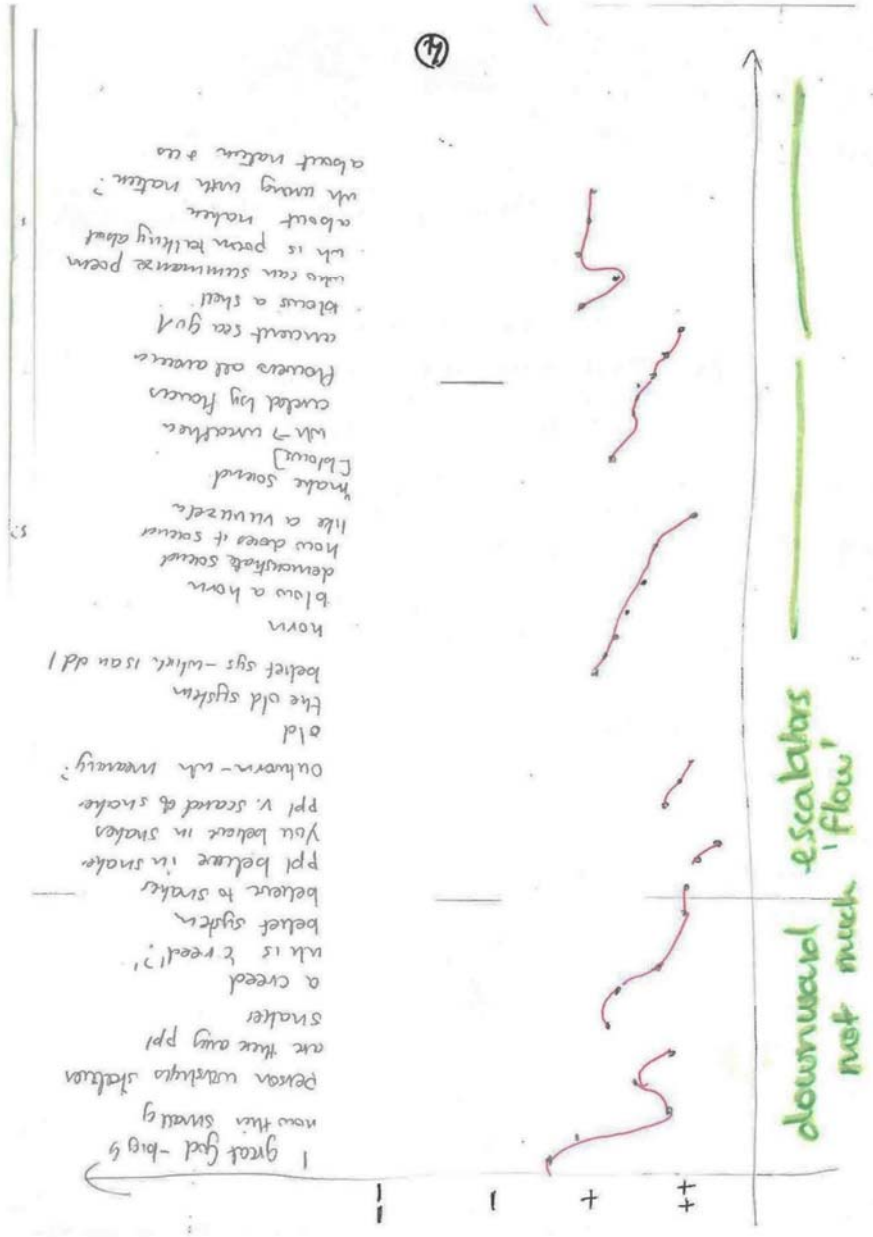 ++
+
–
– –
1 great God - big G
now this small g
person worships statues
are there any ppl
snakes
a creed
wh is 'creed'?
belief system
believe to snakes
ppl believe in snake
you believe in snakes
ppl v. scared of snake
Outworn - wh meaning?
old
the old system
belief sys - which is an old 1
horn
blow a horn
demonstrate sound
how does it sound
like a vuvuzela
make sound
[blows]
wh → wreathed
circled by flowers
flowers all around
ancient sea god
blows a shell
who can summarize poem
wh is poem talking about
about nature
wh wrong with nature?
about nature + us
downward escalators
not much 'flow'